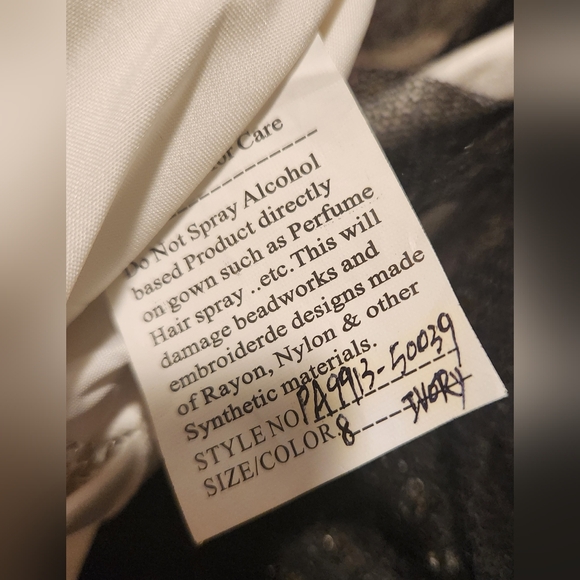 or Care
Do Not Spray Alcohol
based Product directly
on gown such as Perfume
Hair spray ..etc.This will
damage beadworks and
embroiderde designs made
of Rayon, Nylon & other
Synthetic materials.
STYLE NO PA9913-50039
SIZE/COLOR 8----IVORY